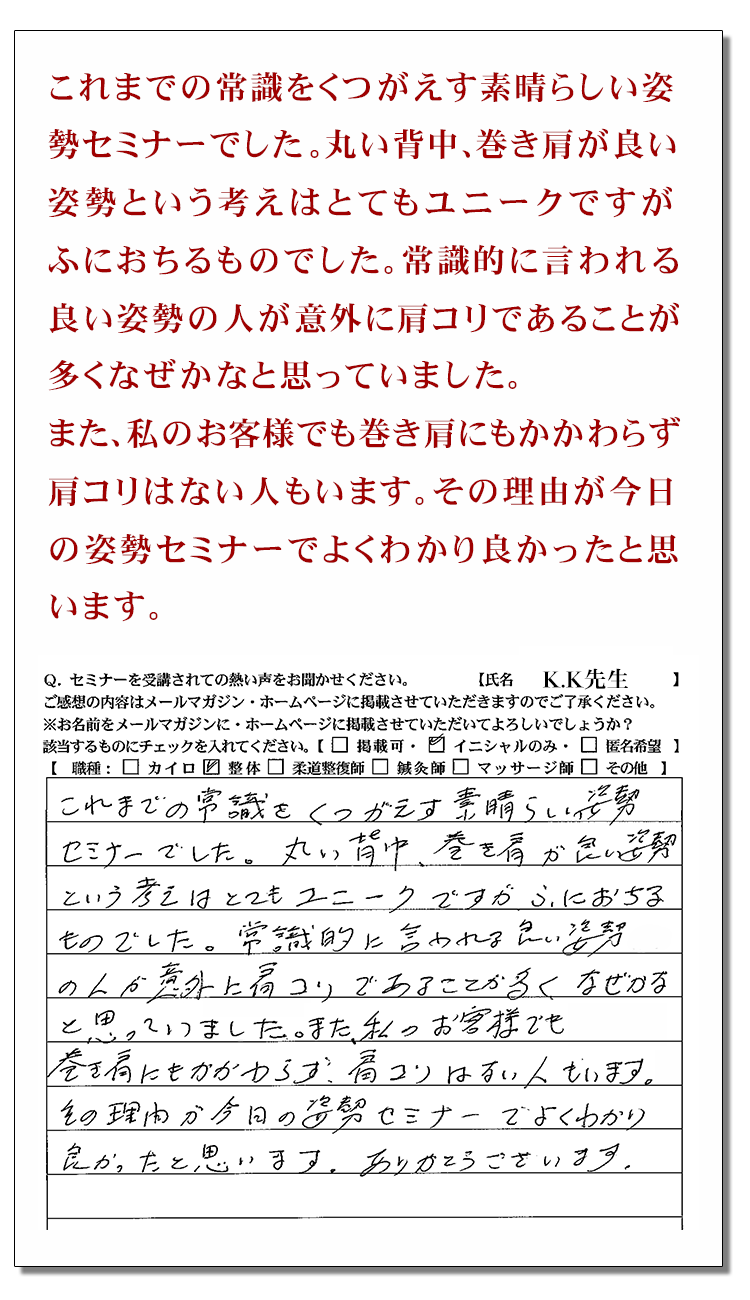 これまでの常識をくつがえす素晴らしい姿
勢セミナーでした。丸い背中、巻き肩が良い
姿勢という考えはとてもユニークですが
ふにおちるものでした。常識的に言われる
良い姿勢の人が意外に肩コリであることが
多くなぜかなと思っていました。
また、私のお客様でも巻き肩にもかかわらず
肩コリはない人もいます。その理由が今日
の姿勢セミナーでよくわかり良かったと思
います。
Q. セミナーを受講されての熱い声をお聞かせください。 【氏名 K.K先生 】
ご感想の内容はメールマガジン・ホームページに掲載させていただきますのでご了承ください。
※お名前をメールマガジンに・ホームページに掲載させていただいてよろしいでしょうか？
該当するものにチェックを入れてください。【 □ 掲載可・ ☑ イニシャルのみ・ □ 匿名希望 】
【 職種： □ カイロ ☑ 整体 □ 柔道整復師 □ 鍼灸師 □ マッサージ師 □ その他 】
これまでの常識をくつがえす素晴らしい姿勢
セミナーでした。丸い背中、巻き肩が良い姿勢
という考えはとてもユニークですがふにおちる
ものでした。常識的に言われる良い姿勢
の人が意外に肩コリであることが多くなぜかな
と思っていました。また、私のお客様でも
巻き肩にもかかわらず、肩コリはない人もいます。
その理由が今日の姿勢セミナーでよくわかり
良かったと思います。ありがとうございます。